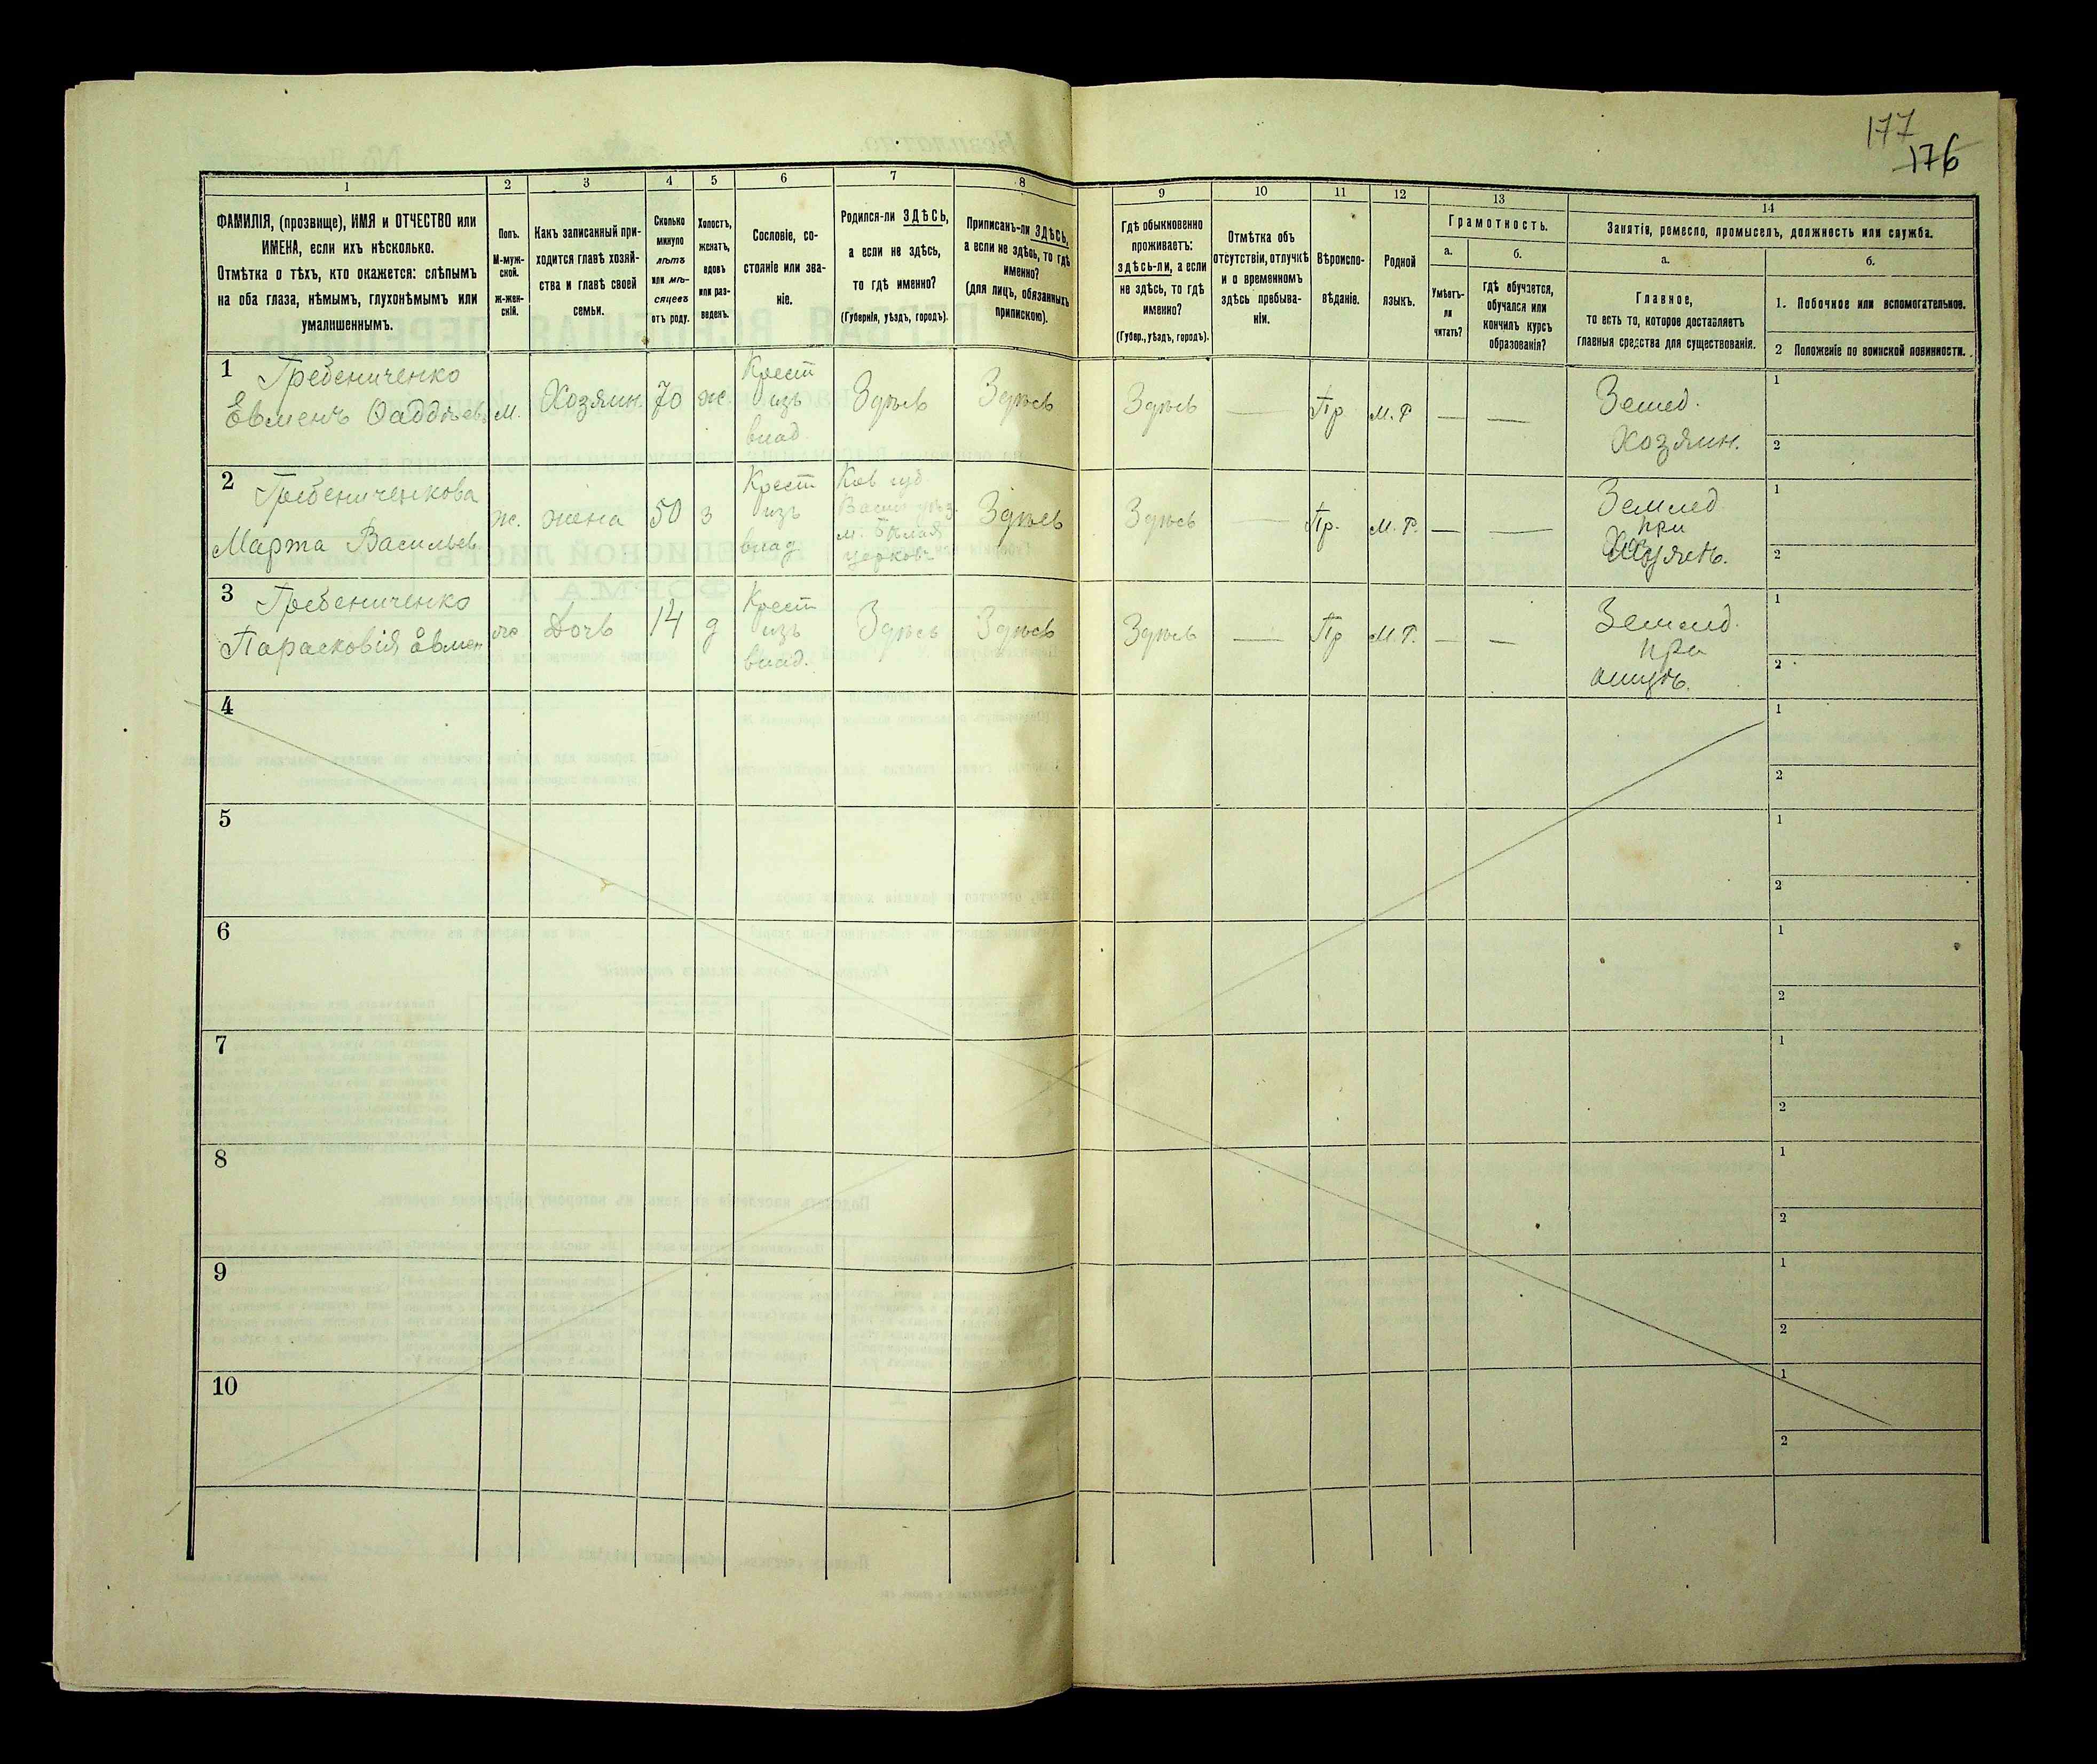 177
176
1
2
3
4
5
6
7
8
9
10
11
12
13
14
ФАМИЛІЯ, (прозвище), ИМЯ и ОТЧЕСТВО или
ИМЕНА, если ихъ нѣсколько.
Отмѣтка о тѣхъ, кто окажется: слѣпымъ
на оба глаза, нѣмымъ, глухонѣмымъ или
умалишеннымъ.
Полъ.
М-муж-
ской.
ж-жен-
скій.
Какъ записанный при-
ходится главѣ хозяй-
ства и главѣ своей
семьи.
Сколько
минуло
лѣтъ
или мѣ-
сяцевъ
отъ роду.
Холостъ,
женатъ,
вдовъ
или раз-
веденъ.
Сословіе, со-
стояніе или зва-
ніе.
Родился-ли ЗДѢСЬ,
а если не здѣсь,
то гдѣ именно?
(Губернія, уѣздъ, городъ).
Приписанъ-ли ЗДѢСЬ,
а если не здѣсь, то гдѣ
именно?
(для лицъ, обязанныхъ
припискою).
Гдѣ обыкновенно
проживаетъ:
здѣсь-ли, а если
не здѣсь, то гдѣ
именно?
(Губер., уѣздъ, городъ).
Отмѣтка объ
отсутствіи, отлучкѣ
и о временномъ
здѣсь пребыва-
ніи.
Вѣроиспо-
вѣданіе.
Родной
языкъ.
Грамотность.
а.
Умѣетъ-
ли
читать?
б.
гдѣ обучается,
обучался или
кончилъ курсъ
образованія?
Занятія, ремесло, промыселъ, должность или служба.
а.
Главное,
то есть то, которое доставляетъ
главныя средства для существованія.
б.
1. Побочное или вспомогательное.
2 Положеніе по воинской повинности.
1 Гребениченко
Евменъ Фаддѣев.
м.
Хозяин.
70
ж
Крест
изъ
влад
Здѣсь
Здѣсь
Здѣсь
—
Пр
М.Р
—
—
Землед.
Хозяин.
1
2
2 Гребениченкова
Марта Васильев
ж.
жена
50
з
Крест
изъ
влад
Киев губ
Васил уѣз.
м. Бѣлая
церковь
Здѣсь
Здѣсь
—
Пр.
М.Р.
—
—
Землед
при
1
2
3 Гребениченко
Парасковія Евмен
ж.
Дочь
14
д
Крест
изъ
влад.
Здѣсь
Здѣсь
Здѣсь
—
Пр
М.Р.
—
—
Землед.
при
отцѣ.
1
2
4
1
2
5
1
2
6
1
2
7
1
2
8
1
2
9
1
2
10
1
2